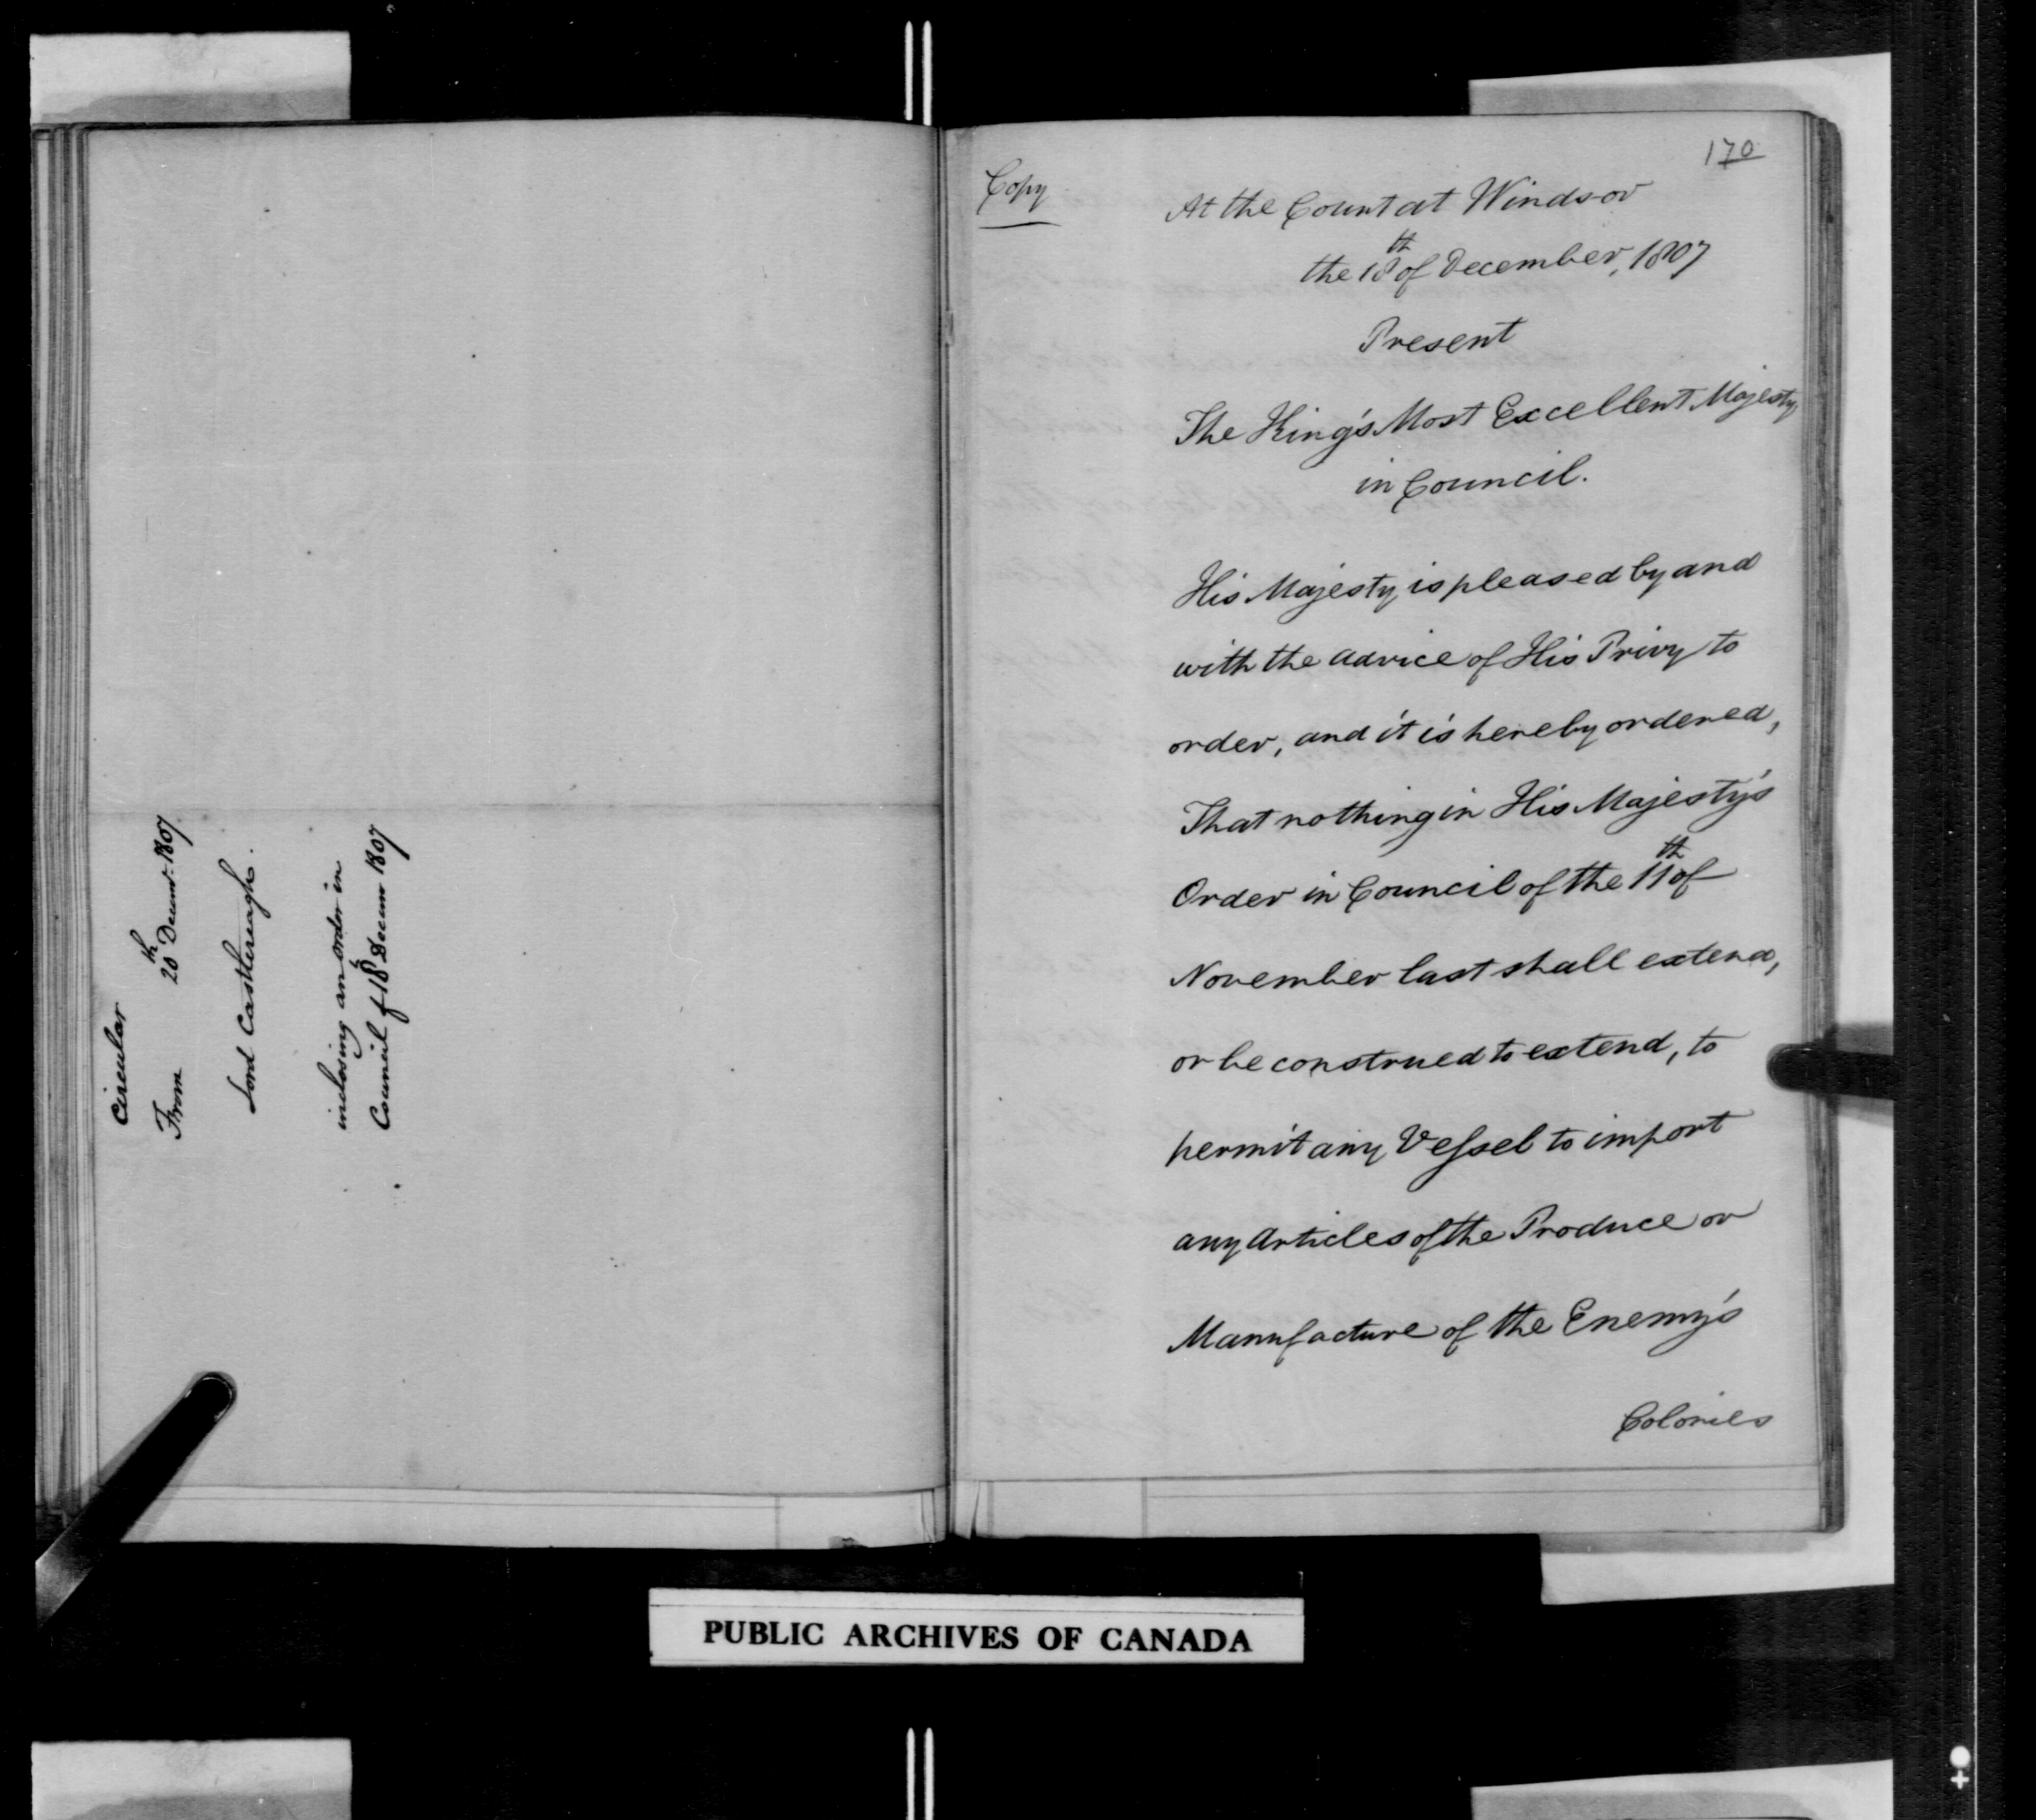 Circular
From 20th Decemr. 1807
Lord Castlereagh.
inclosing an order in
Council of 18th Decem 1807
170
Copy
At the Court at Windsor
the 18th of December, 1807
Present
The King's Most Excellent Majesty
in Council.
His Majesty is pleased by and
with the advice of His Privy to
order, and it is hereby ordered,
That nothing in His Majesty's
Order in Council of the 11th of
November last shall extend,
or be construed to extend, to
permit any Vessel to import
any Articles of the Produce or
Manufacture of the Enemy's
Colonies
PUBLIC ARCHIVES OF CANADA